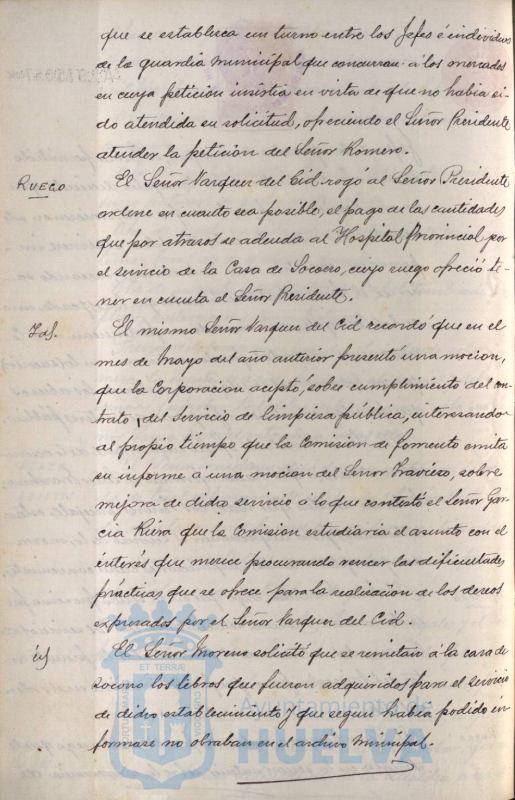 que se establezca un turno entre los Jefes é individuos
de la guardia municipal que concurran á los mercados
en cuya peticion insistia en vista de que no habia si-
do atendida su solicitud, ofreciendo el Señor Presidente
atender la peticion del Señor Romero.
RUEGO
El Señor Vazquez del Cid rogó al Señor Presidente
ordene en cuanto sea posible, el pago de las cantidades
que por atrasos se adeuda al Hospital Provincial por
el servicio de la Casa de Socorro, cuyo ruego ofreció te-
ner en cuenta el Señor Presidente.
Id.
El mismo Señor Vazquez del Cid recordó que en el
mes de Mayo del año anterior presentó una mocion,
que la Corporacion aceptó, sobre cumplimiento del con-
trato, del Servicio de limpieza pública, interesando
al propio tiempo que la Comision de fomento emita
su informe á una mocion del Señor Travieso, sobre
mejora de dicho servicio á lo que contestó el Señor Gar-
cia Riva que la Comision estudiaria el asunto con el
interés que merece procurando vencer las dificultades
prácticas que se ofrece para la realizacion de los deseos
expresados por el Señor Vazquez del Cid.
id
El Señor Moreno solicitó que se remitan á la casa de
socorro los libros que fueron adquiridos para el servicio
de dicho establecimiento y que segun habia podido in-
formarse no obraban en el archivo municipal.
ET TERRÆ
Ayuntamiento de
HUELVA